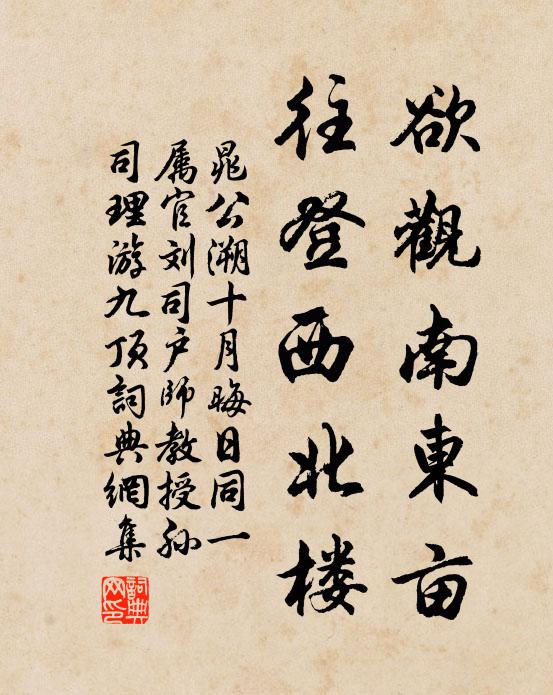 欲觀南東亩
往登西北楼
晁公溯十月晦日同一
属官刘司户師教授孙
司理游九顶詞典網集
詞典网印